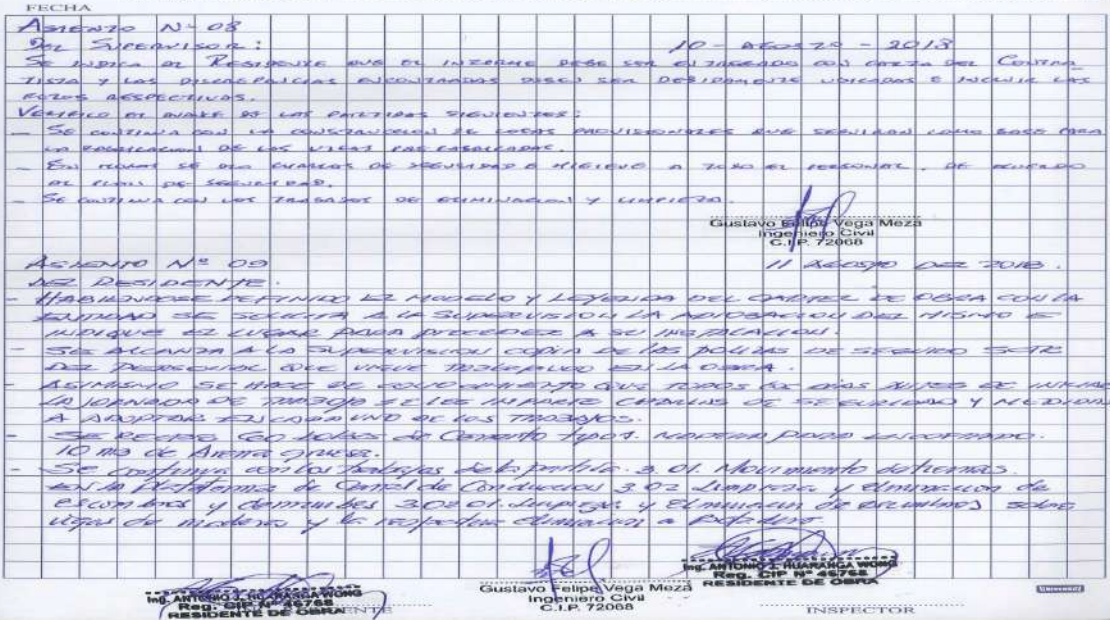 FECHA
ASIENTO N- 08
DEL SUPERVISOR: 10 - AGOSTO - 2018
SE INDICA AL RESIDENTE QUE EL INFORME DEBE SER ENTREGADO CON CARTA DEL CONTRA
TISTA Y LAS DISCREPANCIAS ENCONTRADAS DEBEN SER DEBIDAMENTE UBICADAS E INCLUIR LAS
FOTOS RESPECTIVAS.
VERIFICO EL AVANCE DE LAS PARTIDAS SIGUIENTES:
- SE CONTINUA CON LA CONSTRUCCION DE LOSAS PROVISIONALES QUE SERVIRAN COMO BASE PARA
LA FABRICACION DE LAS VIGAS
- EN SE DIO CHARLAS DE SEGURIDAD E HIGIENE A TODO EL PERSONAL, DE ACUERDO
AL PLAN DE SEGURIDAD.
- SE CONTINUA CON LOS TRABAJOS DE ELIMINACION Y LIMPIEZA.
Gustavo Felipe Vega Meza
Ingeniero Civil
C.I.P. 72068
ASIENTO Nº 09 11 AGOSTO DEL 2018.
DEL RESIDENTE.
- HABIENDOSE DEFINIDO EL MODELO Y LEYENDA DEL CARTEL DE OBRA CON LA
ENTIDAD SE SOLICITA A LA SUPERVISION LA APROBACION DEL MISMO E
INDIQUE EL LUGAR PARA PROCEDER A SU INSTALACION.
- SE ALCANZA A LA SUPERVISION COPIA DE LAS POLIZAS DE SEGURO SCTR
DEL PERSONAL QUE VIENE TRABAJANDO EN LA OBRA.
- ASIMISMO SE HACE DE CONOCIMIENTO QUE TODOS LOS DIAS ANTES DE INICIAR
LA JORNADA DE TRABAJO SE LES IMPARTE CHARLAS DE SEGURIDAD Y MEDIDAS
A ADOPTAR EN CADA UNO DE LOS TRABAJOS.
- SE RECIBE 60 bolsas de Cemento tipo I. MADERA PARA ENCOFRADO.
10 m3 de Arena gruesa.
- Se continua con los trabajos de la partida. 3.01. Movimiento de tierras.
EN LA Plataforma de Canal de Conduccion 3.02 Limpieza y Eliminacion de
escombros y derrumbes 3.02.01. Limpieza y Eliminacion de escombros sobre
vigas de madera y la respectiva eliminacion a
Ing. ANTONIO J. HUARANGA WONG
Reg. CIP Nº 46768
RESIDENTE DE OBRA
Gustavo Felipe Vega Meza
Ingeniero Civil
C.I.P. 72068
Ing. ANTONIO J. HUARANGA WONG
Reg. CIP Nº 46768
RESIDENTE DE OBRA
INSPECTOR